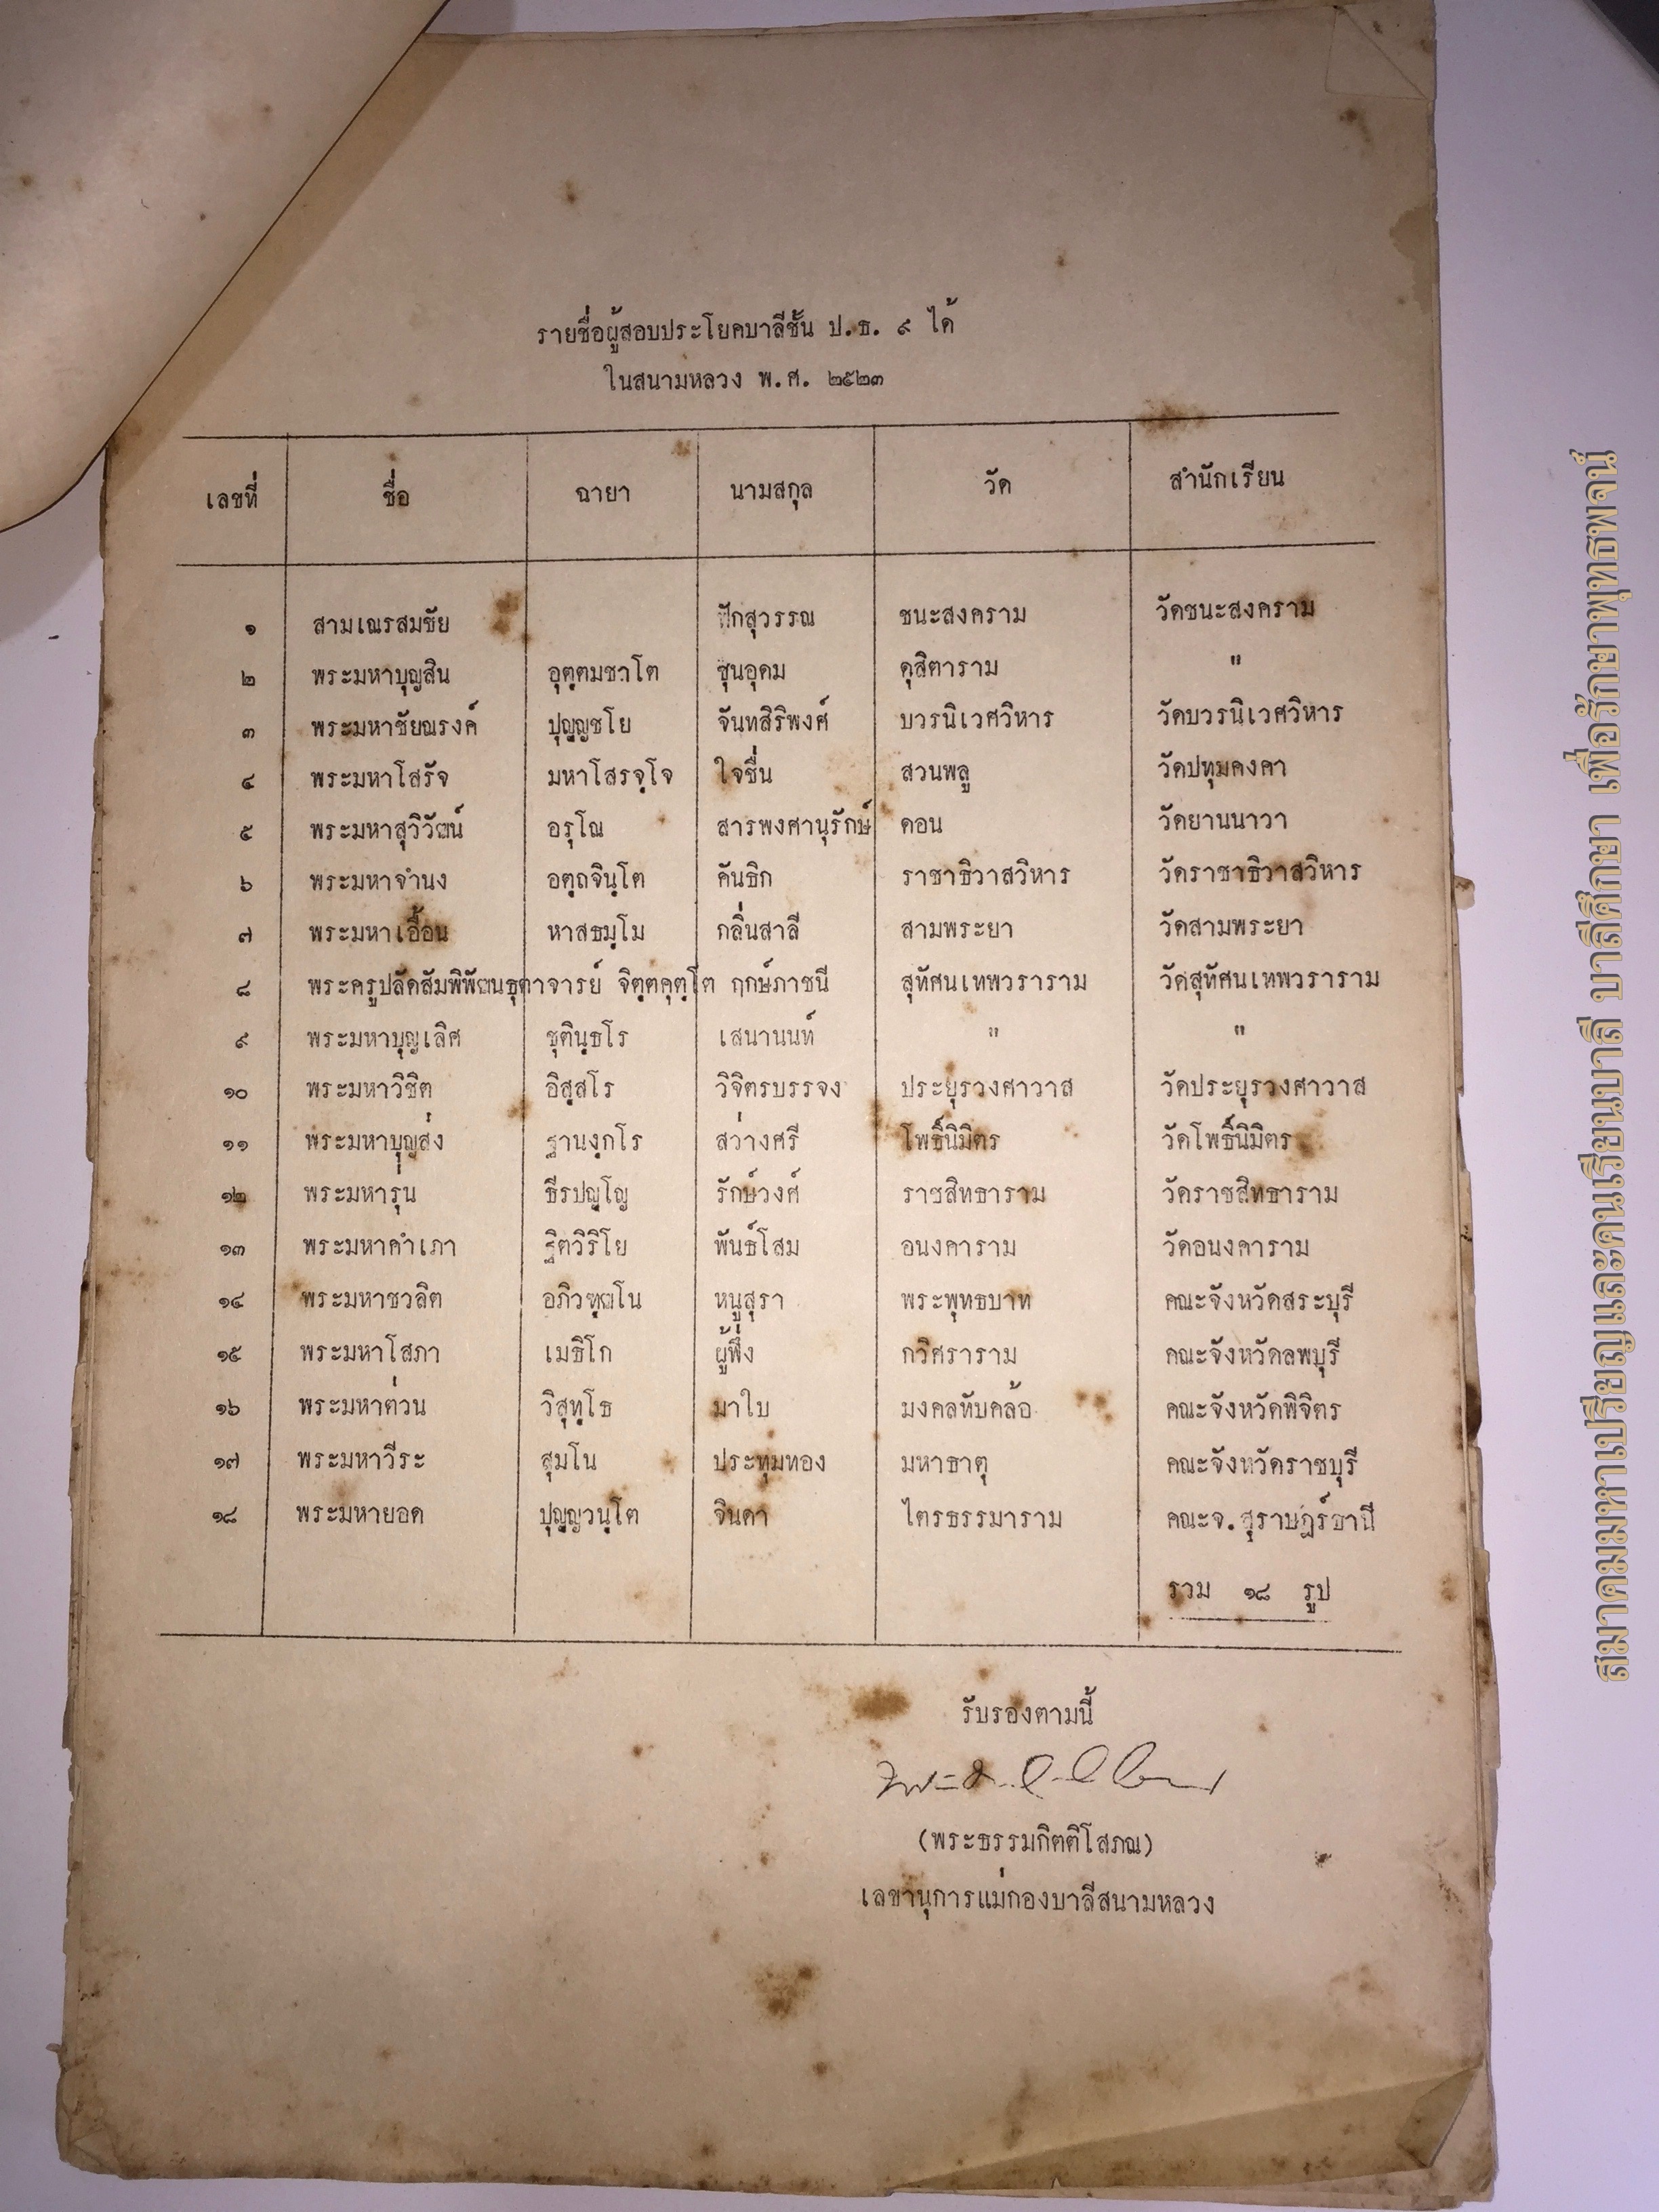 รายชื่อผู้สอบประโยคบาลีชั้น ป.ธ. ๙ ได้
ในสนามหลวง พ.ศ. ๒๕๒๓
เลขที่ ชื่อ ฉายา นามสกุล วัด สำนักเรียน
๑ สามเณรสมชัย ฟักสุวรรณ ชนะสงคราม วัดชนะสงคราม
๒ พระมหาบุญสิน อุตฺตมชาโต ชุนอุดม ดุสิตาราม "
๓ พระมหาชัยณรงค์ ปุญฺญชโย จันทสิริพงศ์ บวรนิเวศวิหาร วัดบวรนิเวศวิหาร
๔ พระมหาโสรัจ มหาโสรจฺโจ ใจชื่น สวนพลู วัดปทุมคงคา
๕ พระมหาสุวิวัฒน์ อรุโณ สารพงศานุรักษ์ ดอน วัดยานนาวา
๖ พระมหาจำนง อตฺถจินฺโต คันธิก ราชาธิวาสวิหาร วัดราชาธิวาสวิหาร
๗ พระมหาเอื้อน หาสธมฺโม กลิ่นสาลี สามพระยา วัดสามพระยา
๘ พระครูปลัดสัมพิพัฒนธุตาจารย์ จิตฺตคุตฺโต ฤกษ์ภาชนี สุทัศนเทพวราราม วัดสุทัศนเทพวราราม
๙ พระมหาบุญเลิศ ชุตินฺธโร เสนานนท์ " "
๑๐ พระมหาวิชิต อิสฺสโร วิจิตรบรรจง ประยุรวงศาวาส วัดประยุรวงศาวาส
๑๑ พระมหาบุญส่ง ฐานงฺกโร สว่างศรี โพธิ์นิมิตร วัดโพธิ์นิมิตร
๑๒ พระมหารุ่น ธีรปญฺโญ รักษ์วงศ์ ราชสิทธาราม วัดราชสิทธาราม
๑๓ พระมหาคำเภา ฐิตวิริโย พันธ์โสม อนงคาราม วัดอนงคาราม
๑๔ พระมหาชวลิต อภิวฑฺฒโน หนูสุรา พระพุทธบาท คณะจังหวัดสระบุรี
๑๕ พระมหาโสภา เมธิโก ผู้พึ่ง กวิศราราม คณะจังหวัดลพบุรี
๑๖ พระมหาต่วน วิสุทฺโธ มาใบ มงคลทับคล้อ คณะจังหวัดพิจิตร
๑๗ พระมหาวีระ สุมโน ประทุมทอง มหาธาตุ คณะจังหวัดราชบุรี
๑๘ พระมหายอด ปุญฺญวนฺโต จินดา ไตรธรรมาราม คณะจ.สุราษฎร์ธานี
รวม ๑๘ รูป
รับรองตามนี้
(พระธรรมกิตติโสภณ)
เลขานุการแม่กองบาลีสนามหลวง
สมาคมมหาเปรียญและคนเรียนบาลี บาลีศึกษา เพื่อรักษาพุทธพจน์